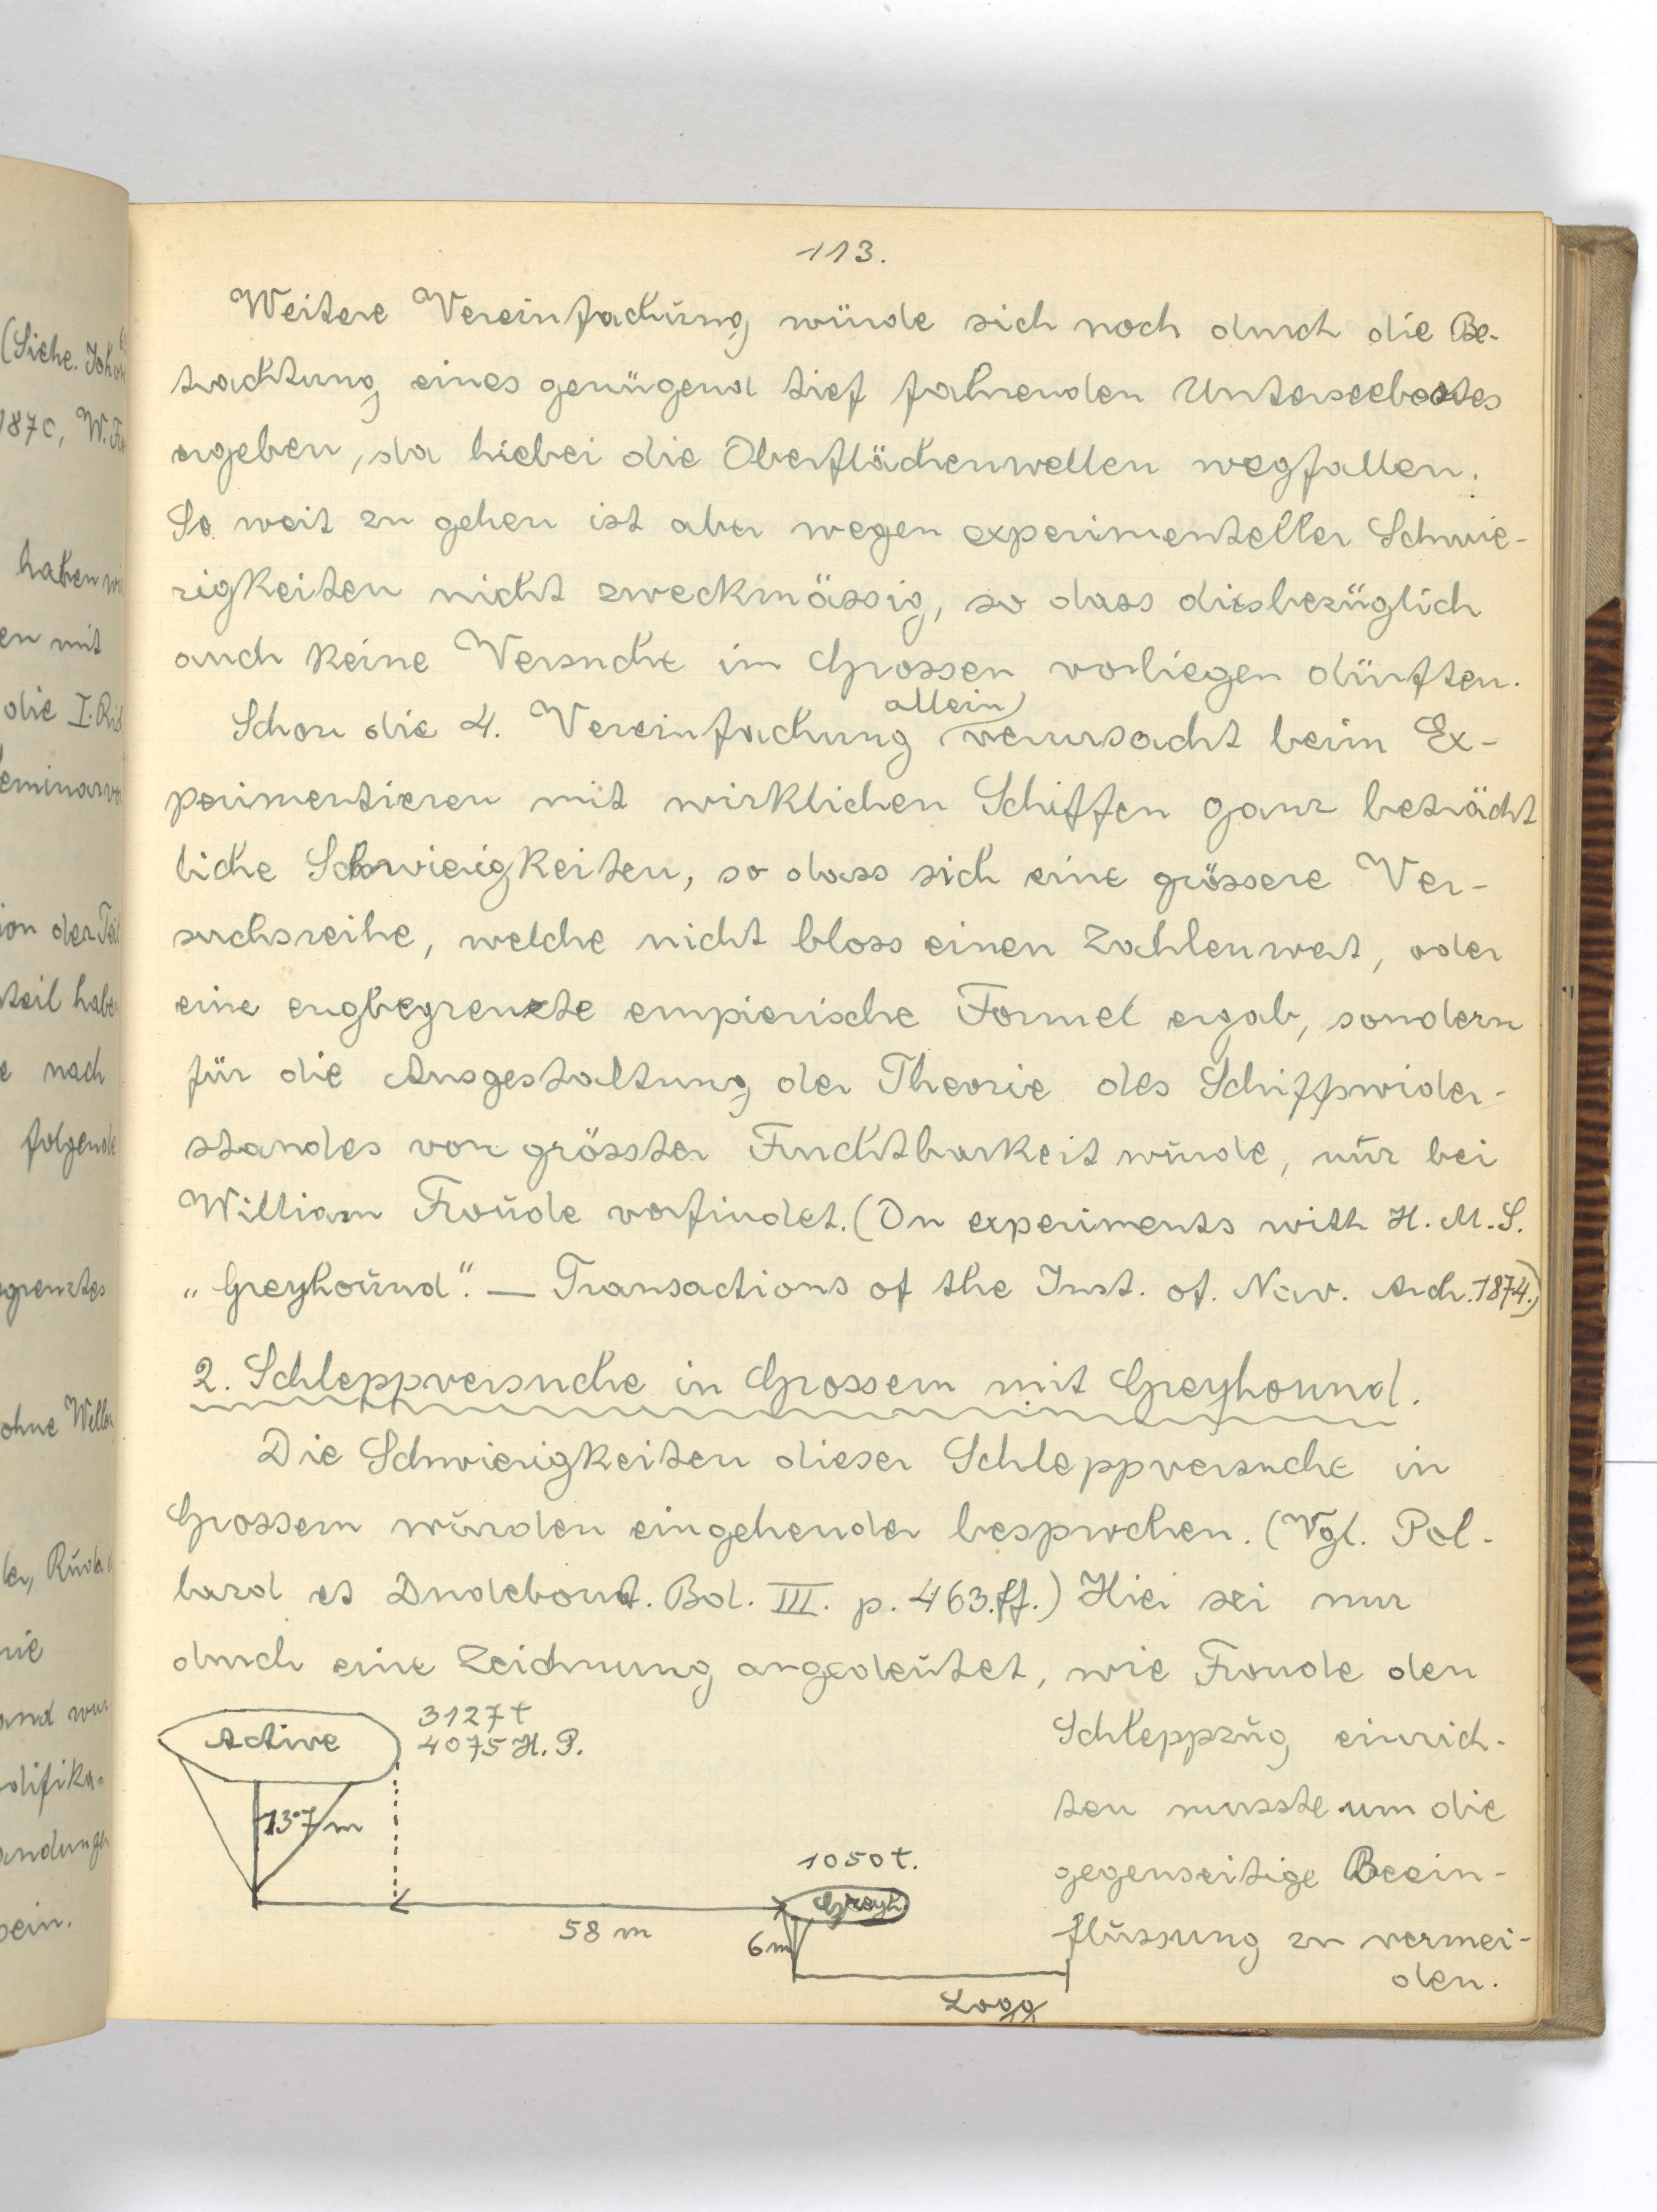 113.
Weitere Vereinfachung würde sich noch durch die Be-
trachtung eines genügend tief fahrenden Unterseebootes
ergeben, da hiebei die Oberflächenwellen wegfallen.
So weit zu gehen ist aber wegen experimenteller Schwie-
rigkeiten nicht zweckmässig, so dass diesbezüglich
auch keine Versuche im Grossen vorliegen dürften.
Schon die 4. Vereinfachung allein verursacht beim Ex-
perimentieren mit wirklichen Schiffen ganz beträcht
liche Schwierigkeiten, so dass sich eine grössere Ver-
suchsreihe, welche nicht bloss einen Zahlenwert, oder
eine engbegrenzte empierische Formel ergab, sondern
für die Ausgestaltung der Theorie des Schiffswider-
standes von grösster Fruchtbarkeit wurde, nur bei
William Froude vorfindet. (On experiments with H. M. S.
„Greyhound". — Transactions of the Inst. of. Nav. Arch. 1874.)
2. Schleppversuche in Grossem mit Greyhound.
Die Schwierigkeiten dieser Schleppversuche in
Grossem würden eingehender besprochen. (Vgl. Pol-
lard et Dudebout. Bd. III. p. 463.ff.) Hier sei nur
durch eine Zeichnung angedeutet, wie Froude den
Schleppzug einrich-
ten musste um die
gegenseitige Beein-
flussung zu vermei-
den.
Active
3127 t
4075 H. P.
13·7 m
58 m
1050 t.
Greyh.
6 m
Logg
(Siehe. Joh
1870, W. Fr
haben wi
en mit
die I. Rid
ion der Teil
teil habe
e nach
folgende
egrenztes
ohne Wellen
and wur
difika-
andungen
sein.